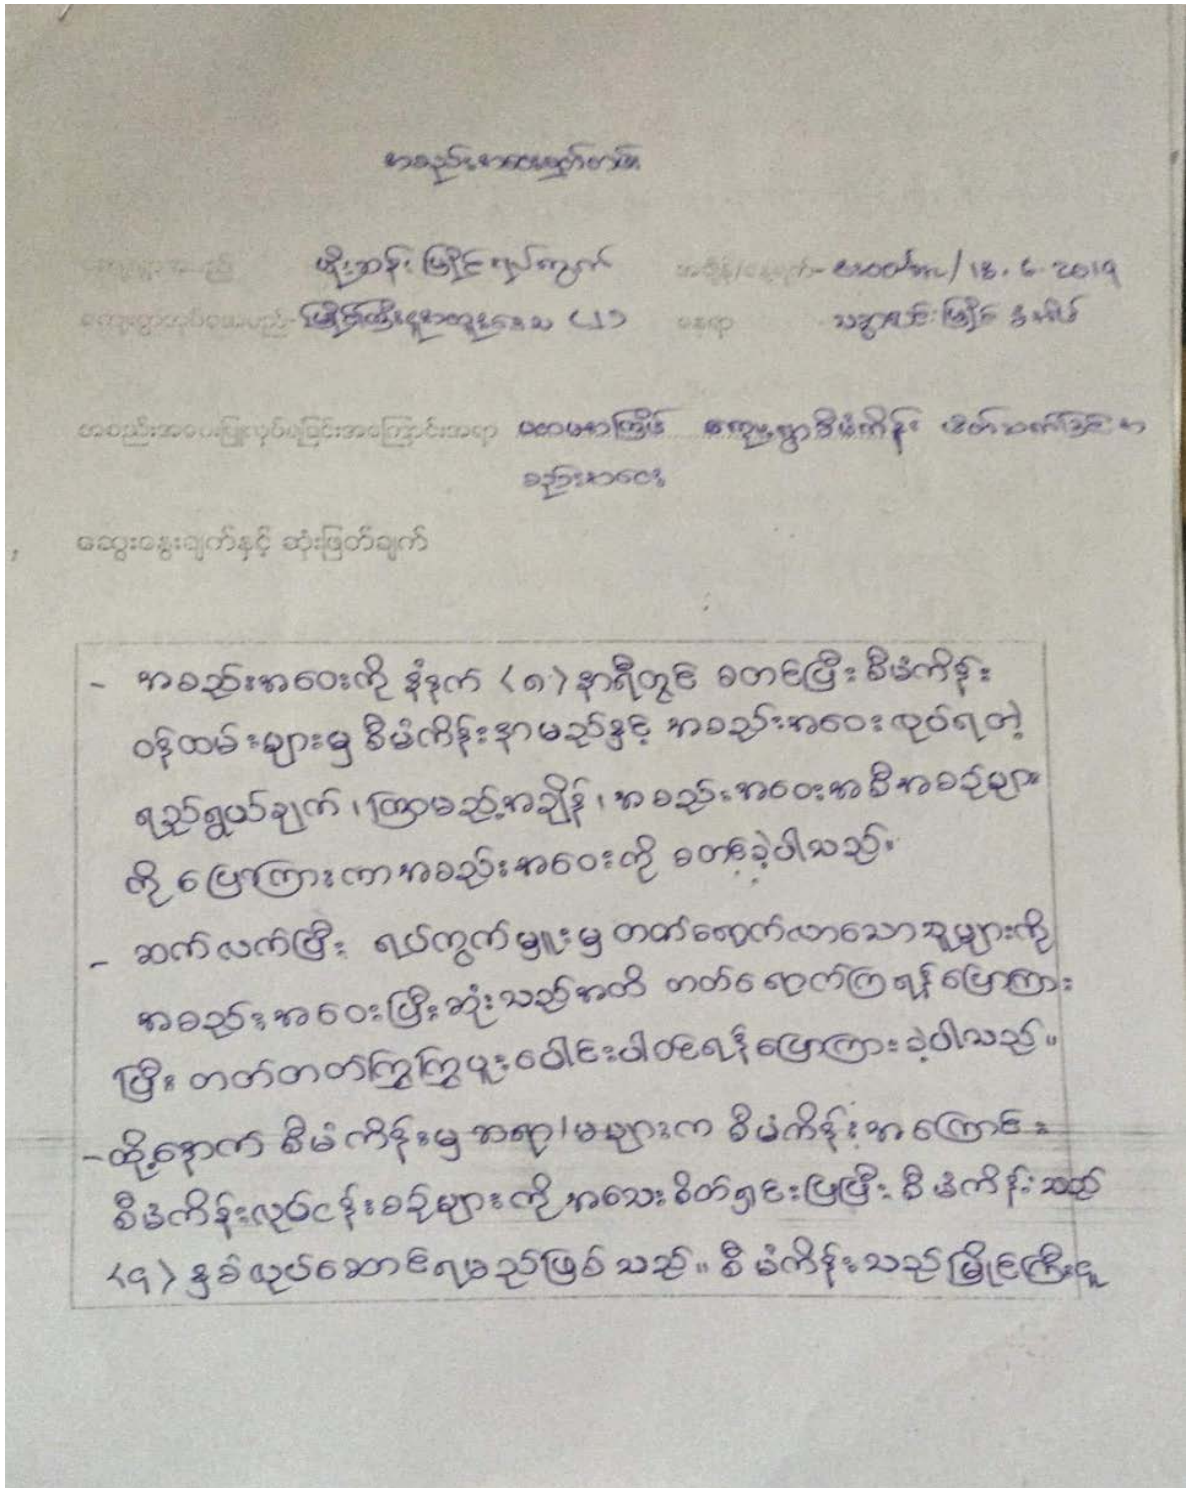 အစည်းအဝေးမှတ်တမ်း
ကျေးရွာအမည် ဖိုးဘန်းမြိုင်ရပ်ကွက် အချိန်/နေ့ရက်- / 18.6.2019
ကျေးရွာအုပ်စုအမည်- မြိုင်ကြီးငူအထူးဒေသ နေရာ -
အစည်းအဝေးပြုလုပ်ရခြင်းအကြောင်းအရာ ပထမအကြိမ် ကျေးရွာစီမံကိန်း မိတ်ဆက်ခြင်း အ
စည်းအဝေး
ဆွေးနွေးချက်နှင့် ဆုံးဖြတ်ချက်
- အစည်းအဝေးကို နံနက် (၈) နာရီတွင် စတင်ပြီး စီမံကိန်း
ဝန်ထမ်းများမှ စီမံကိန်းနာမည်နှင့် အစည်းအဝေးလုပ်ရတဲ့
ရည်ရွယ်ချက်၊ ကြာမည့်အချိန်၊ အစည်းအဝေးအစီအစဉ်များ
ကို ပြောကြားကာ အစည်းအဝေးကို စတင်ခဲ့ပါသည်။
- ဆက်လက်ပြီး ရပ်ကွက်မှူးမှ တက်ရောက်လာသောသူများကို
အစည်းအဝေးပြီးဆုံးသည်အထိ တက်ရောက်ကြရန် ပြောကြား
ပြီး တက်တက်ကြွကြွပူးပေါင်းပါဝင်ရန် ပြောကြားခဲ့ပါသည်။
- ထို့နောက် စီမံကိန်းမှ ဆရာ/မများက စီမံကိန်းအကြောင်း
စီမံကိန်းလုပ်ငန်းစဉ်များကို အသေးစိတ်ရှင်းပြပြီး စီမံကိန်းသည်
(၄) နှစ်လုပ်ဆောင်ရမည်ဖြစ်သည်။ စီမံကိန်းသည် မြိုင်ကြီးငူ